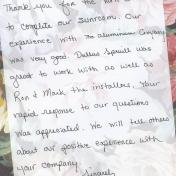 Thank you for the
to complete our sunroom. Our
experience with The aluminum Company
was very good. Dallas Sprouls was
great to work with as well as
Ron & Mark the installers. Your
rapid response to our questions
was appreciated. We will tell others
about our positive experience with
your company.
Sincerely